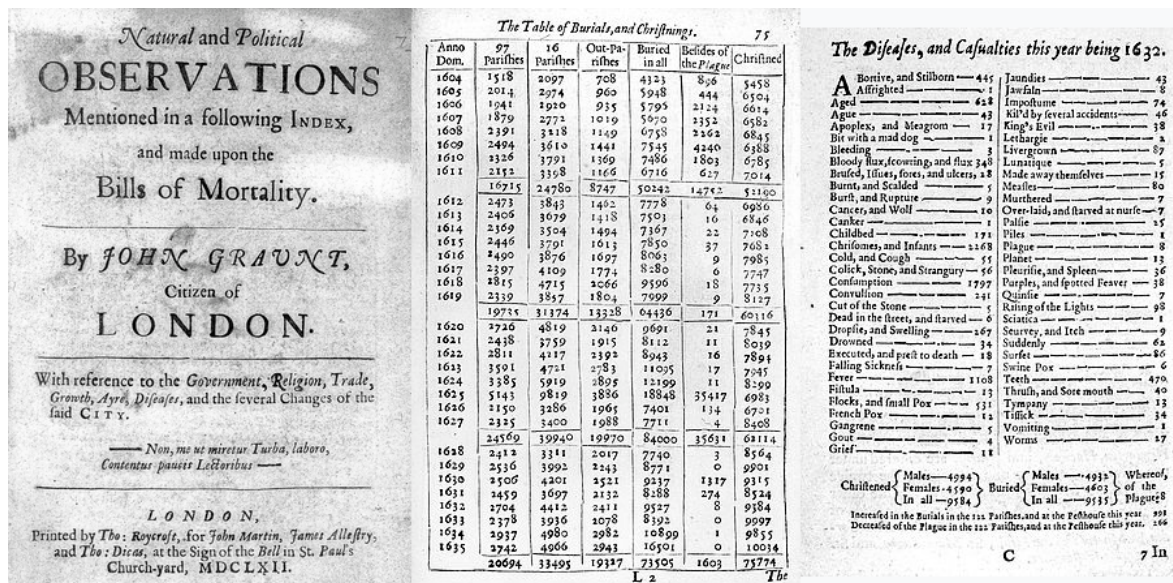 Natural and Political
OBSERVATIONS
Mentioned in a following INDEX,
and made upon the
Bills of Mortality.
By JOHN GRAUNT,
Citizen of
LONDON.
With reference to the Government, Religion, Trade,
Growth, Ayre, Diſeaſes, and the ſeveral Changes of the
ſaid CITY.
—— Non, me ut miretur Turba, laboro,
Contentus paucis Lectoribus ——
LONDON,
Printed by Tho: Roycroft, for John Martin, James Alleſtry,
and Tho: Dicas, at the Sign of the Bell in St. Paul's
Church-yard, MDCLXII.
The Table of Burials, and Chriſtnings. 75
Anno Dom. 97 Pariſhes 16 Pariſhes Out-Pariſhes Buried in all Beſides of the Plague Chriſtned
1604 1518 2097 708 4323 896 5458
1605 2014 2974 960 5948 444 6504
1606 1941 2920 935 5796 2124 6614
1607 1879 2772 1019 5670 2352 6582
1608 2391 3218 1149 6758 2262 6845
1609 2494 3610 1441 7545 4240 6388
1610 2326 3791 1369 7486 1803 6785
1611 2152 3398 1166 6716 627 7014
16715 24780 8747 50242 14752 52190
1612 2473 3843 1462 7778 64 6986
1613 2406 3679 1418 7503 16 6846
1614 2369 3504 1494 7367 22 7208
1615 2446 3791 1613 7850 37 7682
1616 2490 3876 1697 8063 9 7985
1617 2397 4109 1774 8280 6 7747
1618 2815 4715 2066 9596 18 7735
1619 2339 3857 1804 7999 9 8127
19735 31374 13328 64436 171 60316
1620 2726 4819 2146 9691 21 7845
1621 2438 3759 1915 8112 11 8039
1622 2811 4217 2392 8943 16 7894
1623 3591 4721 2783 11095 17 7945
1624 3385 5919 2895 12199 11 8299
1625 5143 9819 3886 18848 35417 6983
1626 2150 3286 1965 7401 134 6701
1627 2325 3400 1988 7711 4 8408
24569 39940 19970 84000 35631 62114
1628 2412 3311 2017 7740 3 8564
1629 2536 3992 2243 8771 0 9901
1630 2506 4201 2521 9237 1317 9315
1631 2459 3697 2132 8288 274 8524
1632 2704 4412 2411 9527 8 9584
1633 2378 3936 2078 8392 0 9997
1634 2937 4980 2982 10899 1 9855
1635 2742 4966 2943 16501 0 10034
20694 33495 19327 73505 1603 75774
L 2 The
The Diſeaſes, and Caſualties this year being 1632.
ABortive, and Stilborn — 445
Affrighted — 1
Aged — 628
Ague — 43
Apoplex, and Meagrom — 17
Bit with a mad dog — 1
Bleeding — 3
Bloody flux, ſcowring, and flux 348
Bruſed, Iſſues, ſores, and ulcers, 28
Burnt, and Scalded — 5
Burſt, and Rupture — 9
Cancer, and Wolf — 10
Canker — 1
Childbed — 171
Chriſomes, and Infants — 2268
Cold, and Cough — 55
Colick, Stone, and Strangury — 56
Conſumption — 1797
Convulſion — 241
Cut of the Stone — 5
Dead in the ſtreet, and ſtarved — 6
Dropſie, and Swelling — 267
Drowned — 34
Executed, and preſt to death — 18
Falling Sickneſs — 7
Fever — 1108
Fiſtula — 13
Flocks, and ſmall Pox — 531
French Pox — 12
Gangrene — 5
Gout — 4
Grief — 11
Jaundies — 43
Jawfaln — 8
Impoſtume — 74
Kil'd by ſeveral accidents — 46
King's Evil — 38
Lethargie — 2
Livergrown — 87
Lunatique — 5
Made away themſelves — 15
Meaſles — 80
Murthered — 7
Over-laid, and ſtarved at nurſe — 7
Palſie — 25
Piles — 1
Plague — 8
Planet — 13
Pleuriſie, and Spleen — 36
Purples, and ſpotted Feaver — 38
Quinſie — 7
Riſing of the Lights — 98
Sciatica — 1
Scurvey, and Itch — 9
Suddenly — 62
Surfet — 86
Swine Pox — 6
Teeth — 470
Thruſh, and Sore mouth — 40
Tympany — 13
Tiſſick — 34
Vomiting — 1
Worms — 27
Chriſtened { Males — 4994 Females — 4590 In all — 9584 } Buried { Males — 4932 Females — 4603 In all — 9535 } Whereof, of the Plague. 8
Increaſed in the Burials in the 122 Pariſhes, and at the Peſthouſe this year 993
Decreaſed of the Plague in the 122 Pariſhes, and at the Peſthouſe this year. 266
C 7 In